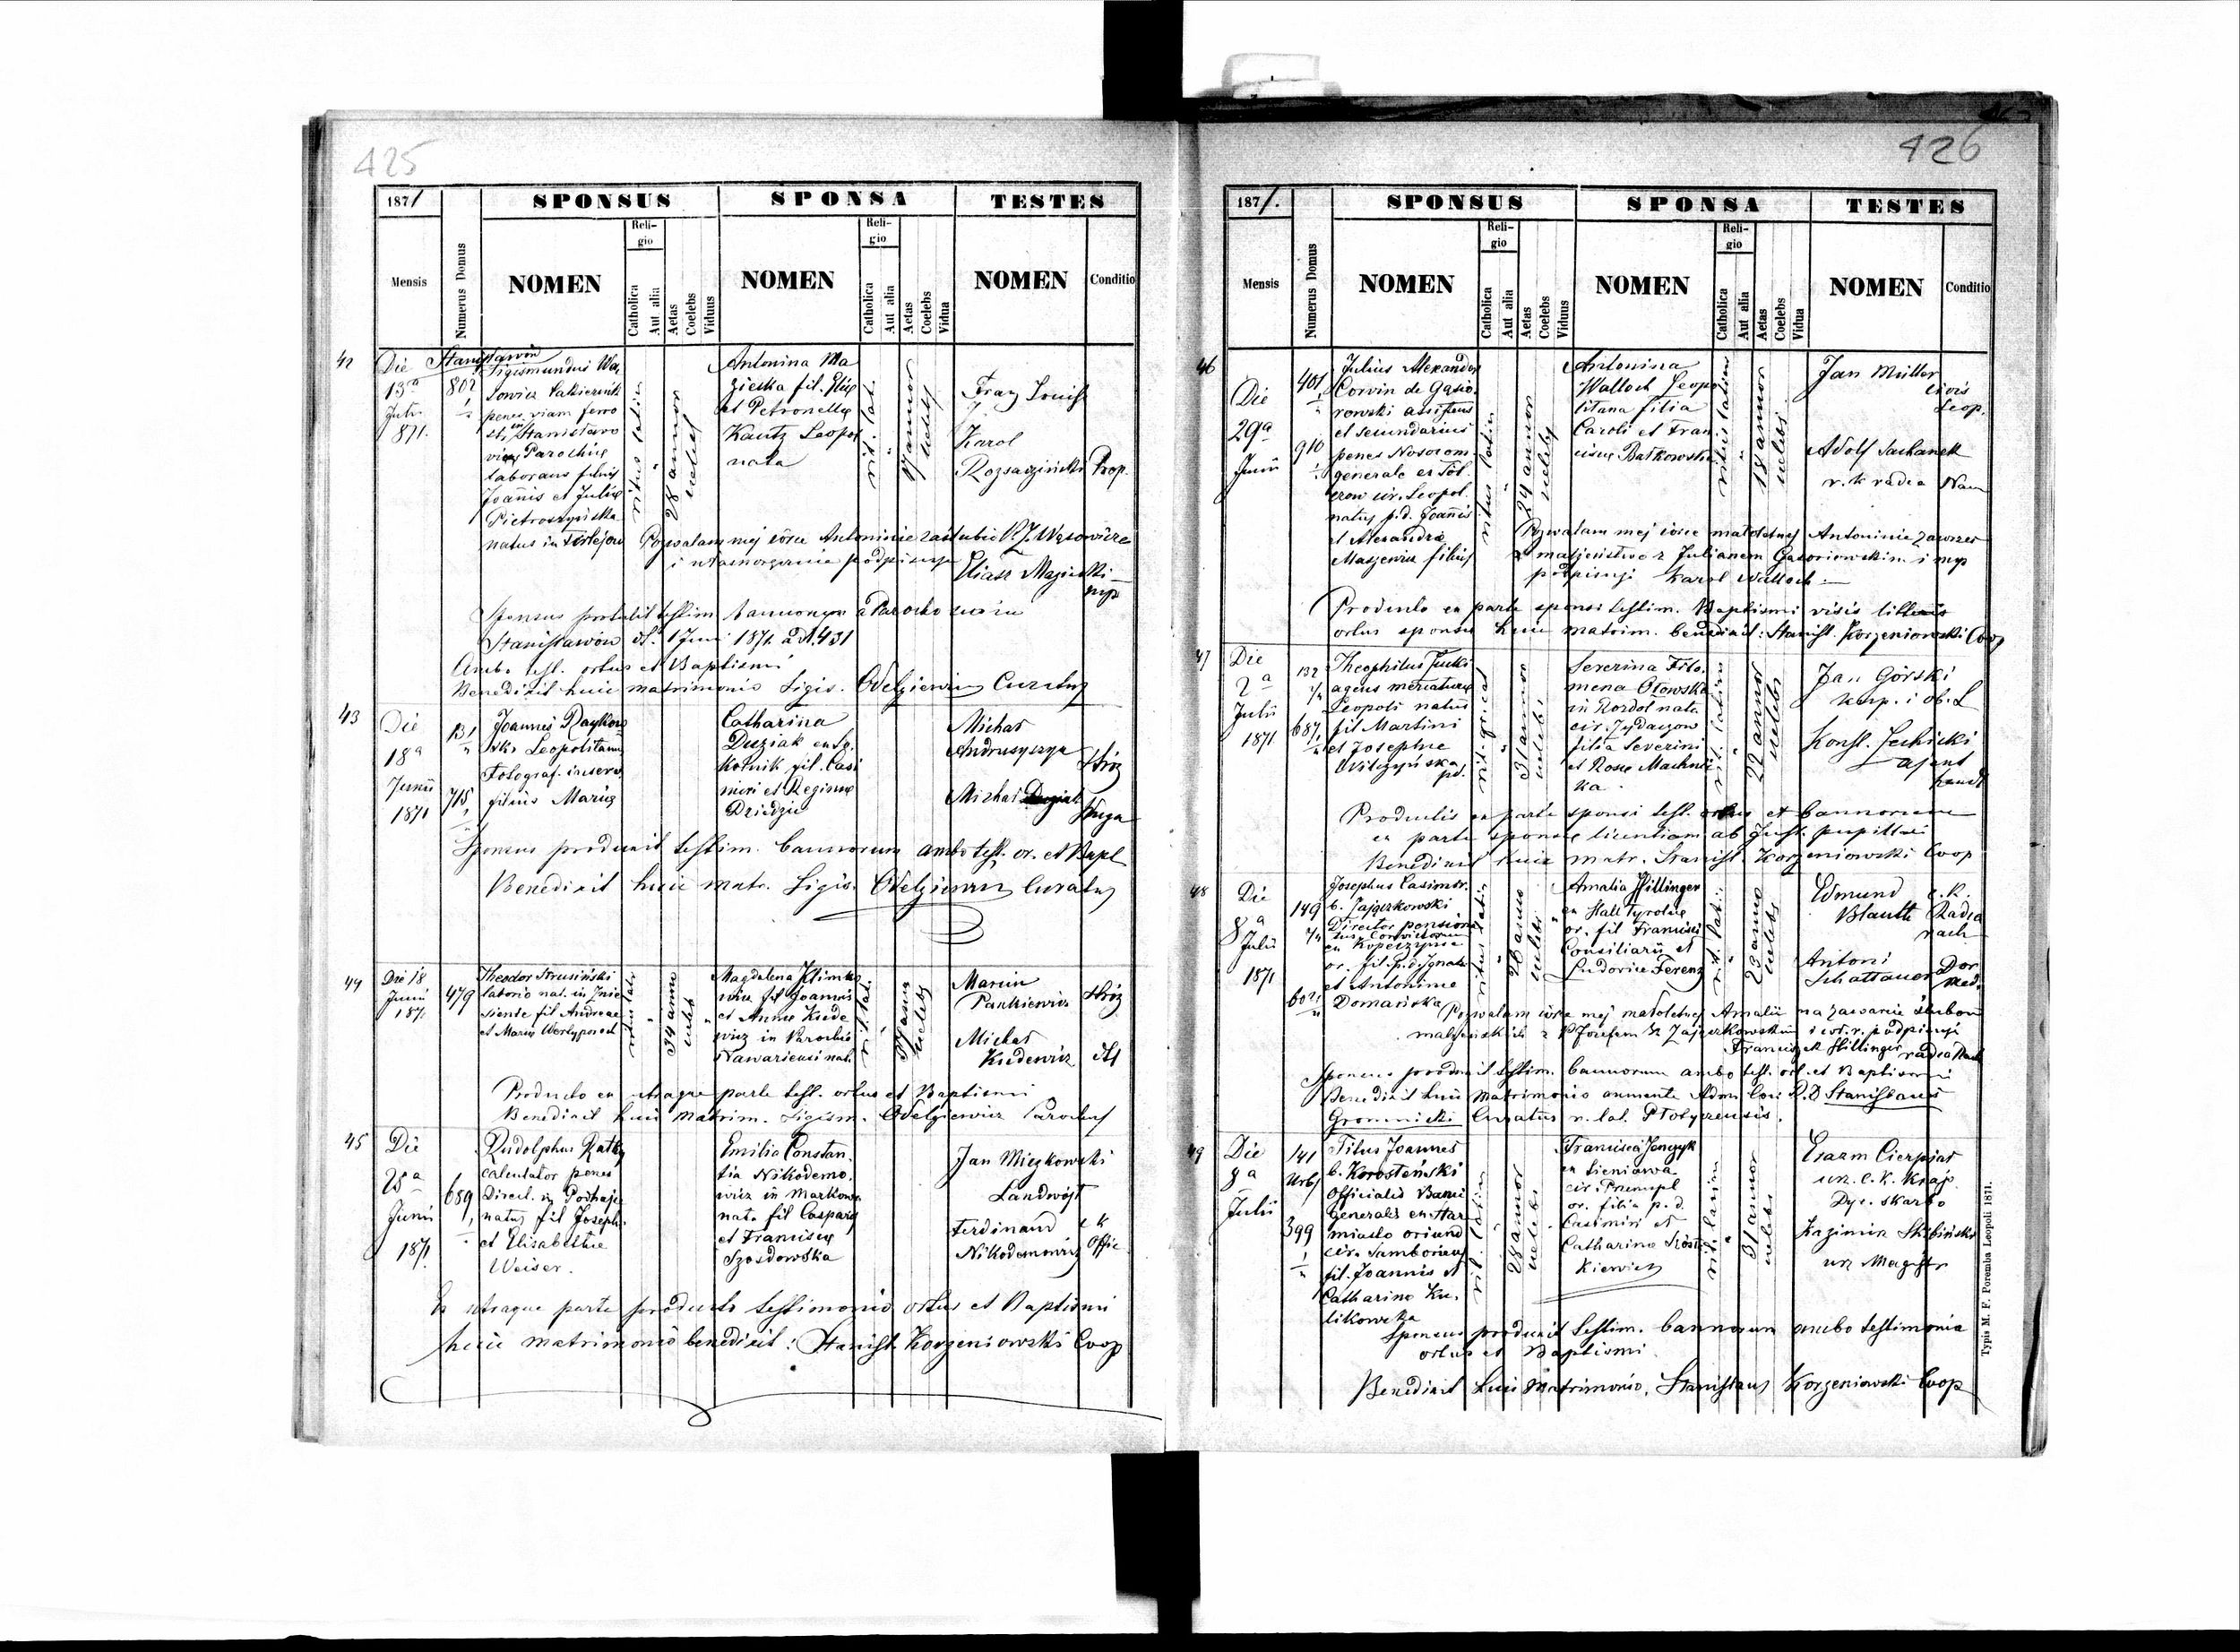 425
1871
SPONSUS
SPONSA
TESTES
Mensis
Numerus Domus
NOMEN
Religio
Catholica
Aut alia
Aetas
Coelebs
Viduus
NOMEN
Religio
Catholica
Aut alia
Aetas
Coelebs
Vidua
NOMEN
Conditio
42
Die Stanisławów
13a
871.
802
Sigismundus Wą
sowicz
penes viam ferro
Stanisławo
Parochiæ
laborans filius
Joannis et Juliæ
Pietroszyńska
natus in
ritus latin
28 annor
caelebs
Antonina Ma
zieska fil. Eliæ
et Petronellæ
Kautz Leopol
nata
rit. lat.
17 annor
caelebs
Franz
Karol
Prop.
Pozwalam mej córce Antoninie zaślubić
i własnoręcznie podpisuję
Eliasz
mp
Sponsus testim. bannorum a Parocho
Stanisławów 1 Juni 1871 431
Ambo test. ortus et Baptismi
Benedixit huic matrimonio Sigis. Odelgiewicz Curatus
43
Die
18a
Junii
1871
131
715
Joannes Raykow
ski Leopolitanu
Fotograf.
filius Mariæ
Catharina
Duziak ex So
kolnik fil. Casi
miri et Reginæ
Dziedzic
Michał
Andruszyszyn
Stróz
Michał
Sługa
Sponsus produxit testim. bannorum ambo test. or. et Bapt
Benedixit huic matr. Sigis. Odelgiewicz Curatus
44
Die 18
Junii
1871
479
Theodor Strusiński
laborio nat. in
fil Andreae
et Maria
ritus lat
34 anno
caeleb
Magdalena Klimko
wicz fil Joannis
et Annæ Kude
wicz in Parochia
Nawariensi nat.
rit. lat.
caelebs
Marcin
Pankiewicz
Stróz
Michał
Kudewicz
Producto ex utraque parte test. ortus et Baptismi
Benedixit huic matrim. Sigism. Odelgiewicz Parochus
45
Die
25a
Junii
1871.
659
Rudolphus
calculator penes
Direct. in Podhaje
natus fil Joseph.
et Elisabethæ
Weiser.
Emilia Constan
tia Nikodemo
wicz in Markow
nata fil Caspari
et Franciscæ
Szosdowska
Jan Mieszkowski
Landwójt
Ferdinand
Nikodemowicz
c k
Offic
Ex utraque parte producto testimonio ortus et Baptismi
huic matrimonio benedixit: Stanisł. Korzeniowski Coop
426
1871.
SPONSUS
SPONSA
TESTES
Mensis
Numerus Domus
NOMEN
Religio
Catholica
Aut alia
Aetas
Coelebs
Viduus
NOMEN
Religio
Catholica
Aut alia
Aetas
Coelebs
Vidua
NOMEN
Conditio
46
Die
29a
Junii
401
910
Julius Alexander
Corvin de Gąsio
rowski assistens
et secundarius
penes Nosocom.
generale ex
cir. Leopol.
natus p.d. Joannis
et Alexandra
filius
ritus latin
24 annor
caelebs
Antonina
Walloch Leopo
litana filia
Caroli et Fran
ciscæ Batkowski
ritus latin
18 annor
caelebs
Jan Müller
civis
Leop.
Adolf Sachanek
r. k radca
Pozwalam mej córce małoletniej Antoninie zawrzeć
małżeństwo z Julianem Gąsiorowskim i mp
podpisuję Karol Walloch
Producto ex parte sponsi testim. Baptismi visis litteris
ortus sponsæ huic matrim. benedixit: Stanisł. Korzeniowski Coop
47
Die
2a
Julii
1871
132
687
Theophilus
agens mercaturæ
Leopoli natus
fil Martini
et Josephæ
Wilczyńska
pd.
rit. græcat
31 annor
caelebs
Severina Filo
mena Otowska
in Rozdol nata
cir. Żydaczow
filia Severini
et Rosæ Machnic
ka
rit. latin
22 annor
caelebs
Jan Górski
Konst.
ajent
handl
Productis ex parte sponsi test. ortus et bannorum
ex parte sponsæ licentiam ab Just. pupillar
Benedixit huic matr. Stanisł. Korzeniowski Coop
48
Die
8a
Julii
1871
149
602
Josephus Casimir.
b. Zajączkowski
Director
ex Kopeczynce
or. fil. p.d. Ignat
et Antoninæ
Domańska
ritus latin
28 anno
caelebs
Amalia Hillinger
ex Hall Tyrolæ
or. fil Francisci
Consiliarii et
Ludovicæ Ferenz
rit. lat.
23 anno
caelebs
Edmund
Blauth
c.k.
Radca
rach
Antoni
Schattauer
Dor
Med.
Pozwalam córce mej małoletniej Amalii na zawarcie ślubów
małżeńskich z P Józefem K Zajączkowskim i wł. r. podpisuję
Franciszek Hillinger radca Rach
Sponsus produxit testim. bannorum ambo test. ort. et Baptismi
Benedixit huic matrimonio annuente Adm. loci R.D Stanislaus
Gromnicki Curatus r. lat.
49
Die
9a
Julii
141
Urbs
399
Titus Joannes
b. Korosteński
Officialis Banci
Generalis ex Star
miasto oriund
cir. Samboriens
fil. Joannis et
Catharinæ Ku
likowska
rit. latin
28 annor
caelebs
Francisca Janczyk
ex Sieniawa
cir. Przemysl
or. filia p. d.
Casimiri et
Catharinæ
kiewicz
rit. latin
31 annor
caelebs
Erazm Cierpiał
urz. c. k. Kraj.
Dyr. skarbo
Kazimierz Skibiński
urz Magistr
Sponsus produxit testim. bannorum ambo testimonia
ortus et Baptismi
Benedixit huic Matrimonio, Stanislaus Korzeniowski Coop
Typis M. F. Poremba Leopoli 1871.